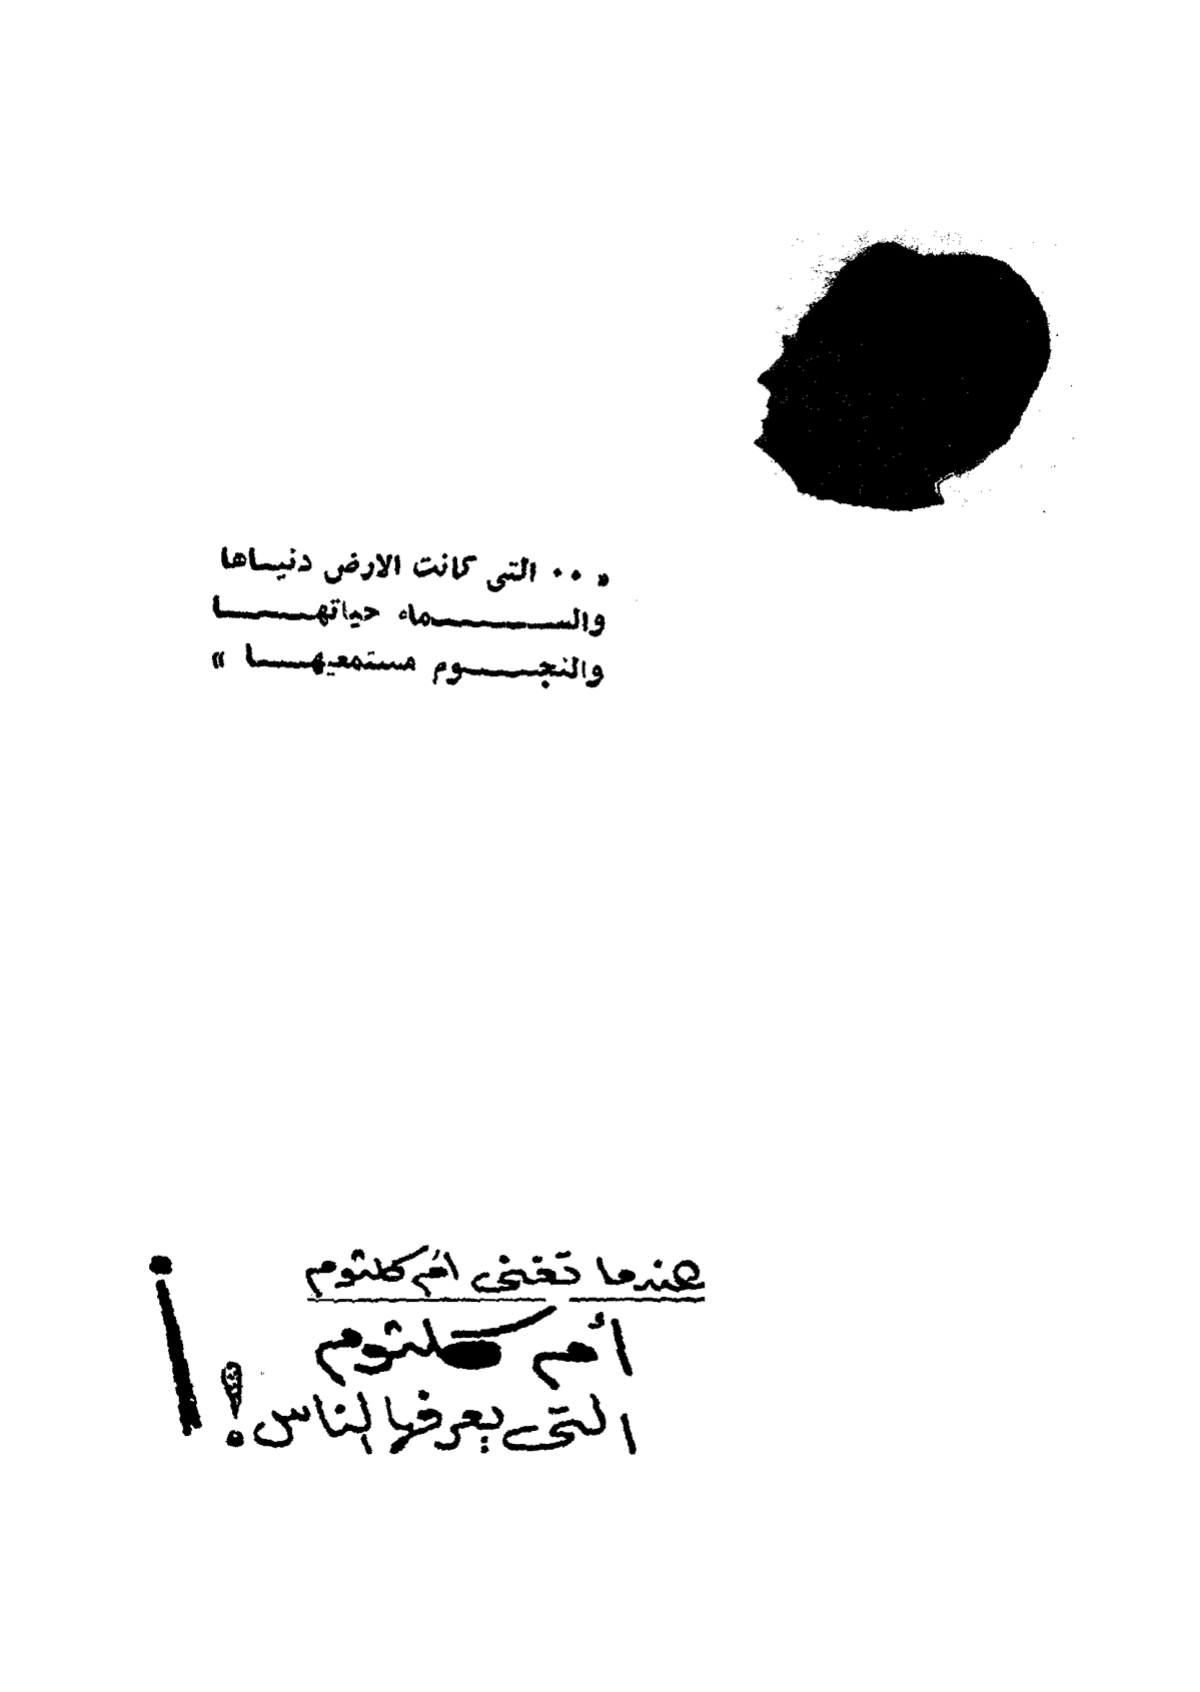 « ٠٠ التى كانت الارض دنيساها
والسماء حياتها
والنجوم مستمعيها »
عندما تغنى أم كلثوم
أم كلثوم
التى يعرفها الناس !